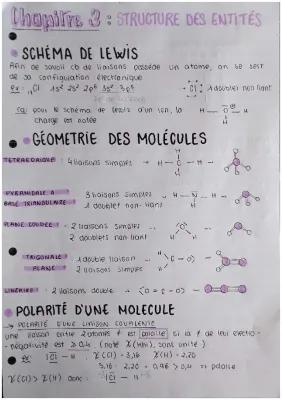 Chapitre 3 : STRUCTURE DES ENTITÉS
SCHÉMA DE LEWIS
Afin de savoir cb de liaisons possède un atome, on se sert
de sa configuration électronique
ex : 17Cl 1s² 2s² 2p⁶ 3s² 3p⁵ → Cl 1 doublet non liant
pour le schéma de Lewis d'un ion, la
charge est notée
H — O — H
GÉOMETRIE DES MOLÉCULES
TETRAEDRIQUE : 4 liaisons simples → H — C — H
PYRAMIDALE A BASE TRIANGULAIRE 3 liaisons simples H — N — H
1 doublet non-liant H
PLANE COUDÉE : 2 liaisons simples
2 doublets non liant H H
TRIGONALE PLANE 1 double liaison H C = O
2 liaisons simples H
LINÉAIRE : 2 liaisons double → O = C = O
POLARITÉ D'UNE MOLECULE
→ POLARITÉ D'UNE LIAISON COVALENTE
une liaison entre 2 atomes est polarisé si la ≠ de leur électro-
négativité est ≥ 0,4. (noté χ(MH), sans unité)
ex : Cl — H χ(Cl) = 3,16 χ(H) = 2,20
3,16 - 2,20 = 0,96 > 0,4 polaire
χ(Cl) > χ(H) donc Cl — H